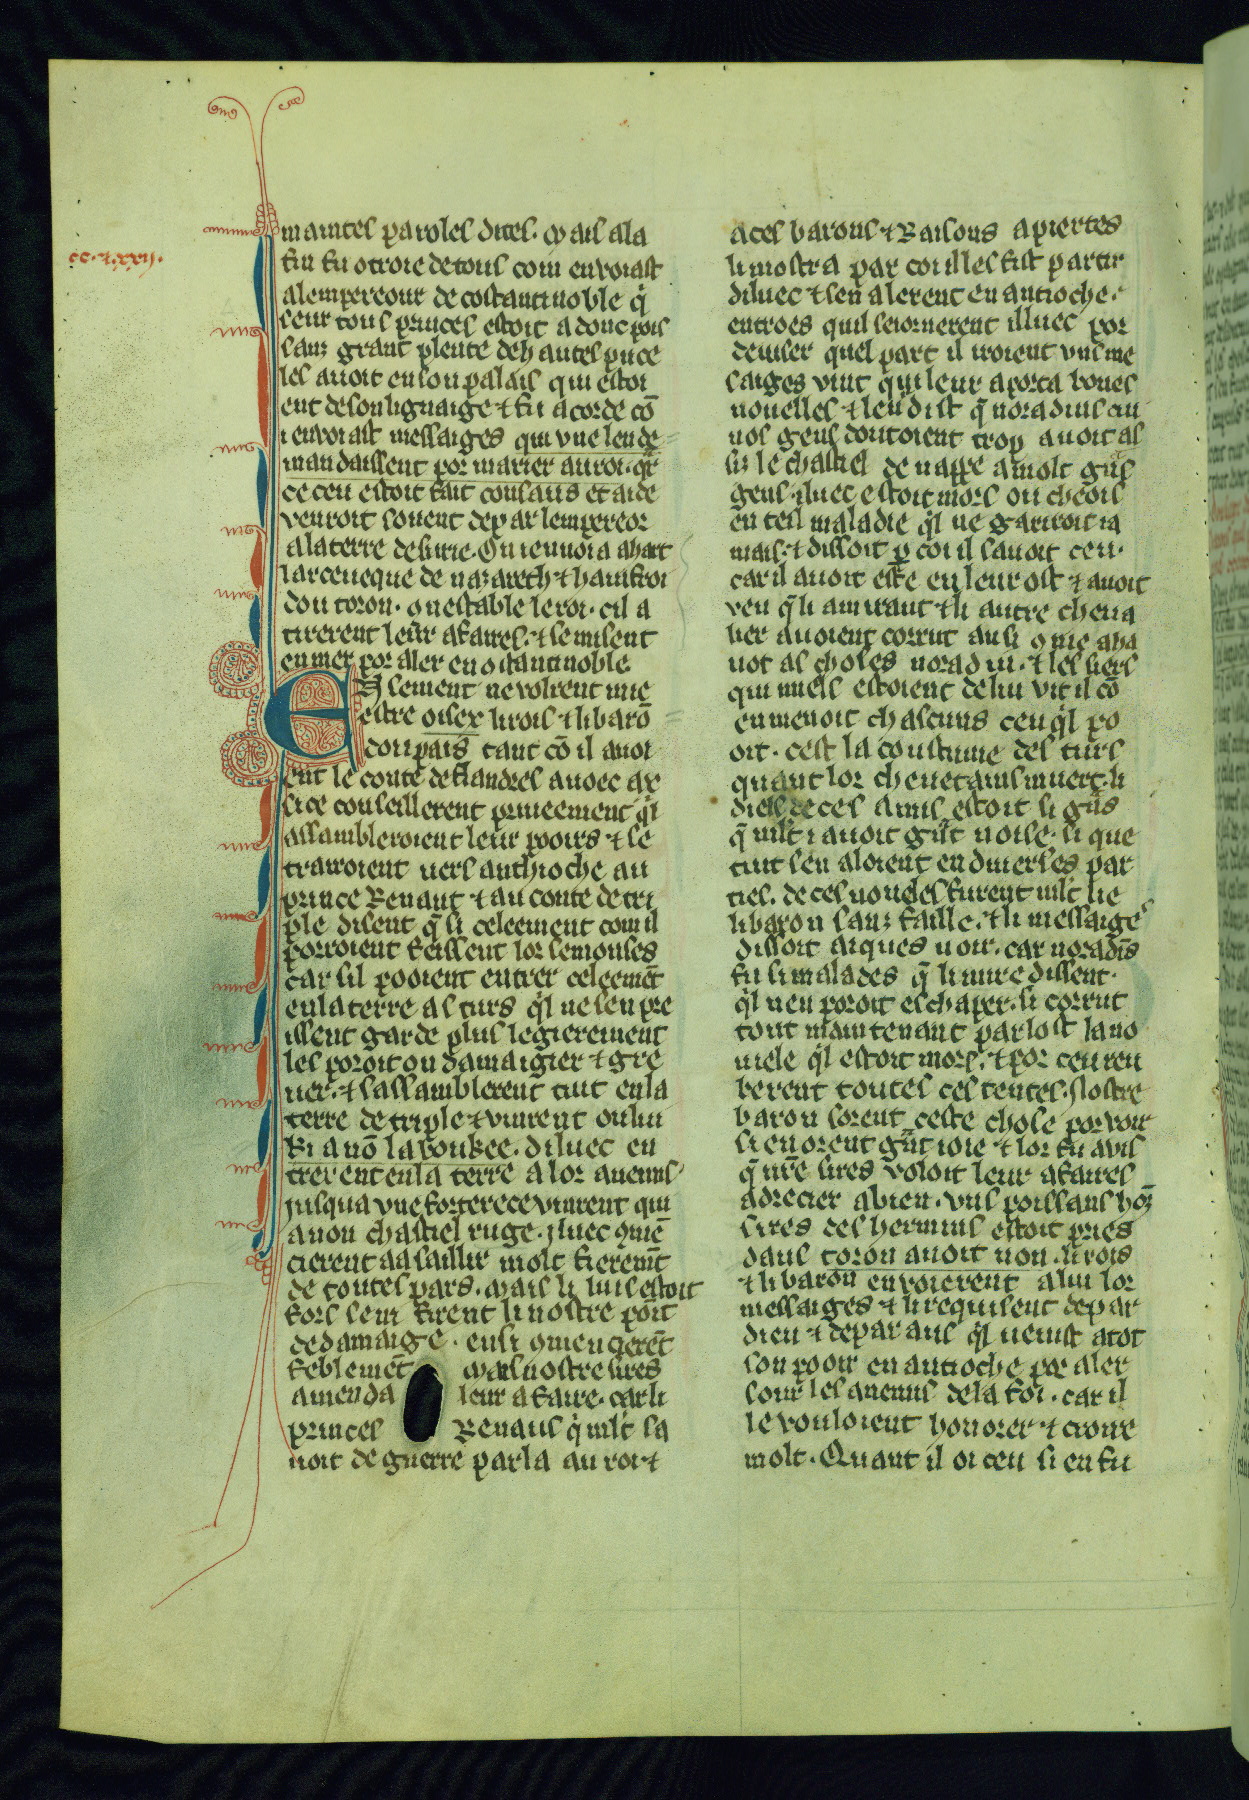 cc.⁊.xxxij.
maintes paroles dites. Mais ala
fin fu otroie de tous com envoiast
alempereour de costantinoble q̇
seur tous princes estoit adonc pois
sanz grant plente deh autes p̃nce
ses avoit en son palais qui estoi
ent de son lignaige ⁊ fu acorde cō
i envoiast messaiges qui une len de
mandaissent por marier au roi. qr̄
ce ceu estoit fait consaus et aide
venroit sovent dep ar lempereor
alaterre de surie. On i envoia ahert
larcevesque de nazareth ⁊ hainfroi
dou toron. ꝯnestable le roi. cil a
tirerent leur afaires. ⁊ se misent
en mer por aler en ꝯstantinoble
Ensement ne volrent mie
estre oisex li rois ⁊ li barō
dou païs tant cō il avoi
ent le conte de flandres avoec ax
si ce conseillerent priveement q̇l
assambleroient leur pooirs ⁊ se
trairoient vers anthioche au
prince Renaut ⁊ au conte de tri
ple disent q̄ si celeement com il
porroient feissent lor semonses
car sil pooient entrer celeemēt
en la terre as turs q̇l ne sen pre
issent garde plus legierement
les poroit on damaigier ⁊ gre
ver. ⁊ sassamblerent tuit en la
terre de triple ⁊ vinrent ou liu
ki a nō la voukee. diluec en
trerent en la terre a lor anemis
jusqua une forterece vinrent qui
a non chastiel ruge. jluec ꝯmē
cierent aasaillir molt fieremt̄
de toutes pars. Mais li luis estoit
fors sem firent li nostre poīt
de damaige. ensi ꝯmencierēt
feblemēt Mais nostre sires
amenda leur afaire. car li
princes Renaus q̇ mlt̄ sa
voit de guerre parla au roi ⁊
aces barons ⁊ Raisons apiertes
li mostra par coi illes fist partir
diluec ⁊ sen alerent en antioche.
entroes quil seiornerent illuec por
deviser quel part il iroient uns me
saiges vint q̇ leur aporta bones
novelles ⁊ leu dist q̄ noradins cu
nos gens doutoient trop avoit as
sis le chastiel de nappe a molt grn̄s
gens. iluec estoit mors ou cheois
en teil maladie q̇l ne gariroit ia
mais. ⁊ dissoit p̱ coi il savoit ceu.
car il avoit este en leur ost ⁊ avoit
veu q̄ li amiraut ⁊ li autre cheva
lier avoient corrut ausi ꝯme aba
not as choses norad in. ⁊ les siens
qui miels estoient de lui vit il cō
en menoit chascuns ceu q̇l po
oit. cest la coustume des turs
quant lor chevetains muert. li
diels de ces amis estoit si grn̄s
q̄ mlt̄ i avoit grn̄t noise. si que
tuit sen aloient en diverses par
ties. de ces novieles furent mlt̄ lie
li baron sanz faille. ⁊ li messaige
dissoit aiques voir. car noradīs
fu si malades q̄ li mire dissent.
q̇l nen poroit eschaper. si corrut
tout maintenant par lost la no
viele q̇l estoit mors. ⁊ por ceu reu
berent toutes ces tentes. Nostre
baron sorent ceste chose por voir
si en orent grn̄t ioie ⁊ lor fu avis
q̄ nr̄e sires voloit leur afaires
adrecier a bien. uns poissans hoz̄
sires des hermins estoit pries
daus toron avoit non. li rois
⁊ li baron envoierent a lui lor
messaiges ⁊ li requisent de par
dieu ⁊ de par aus q̇l venist atot
son pooir en antioche por aler
sour les anemis de la foi. car il
le vouloient honorer ⁊ croire
molt. Quant il oi ceu si en fu